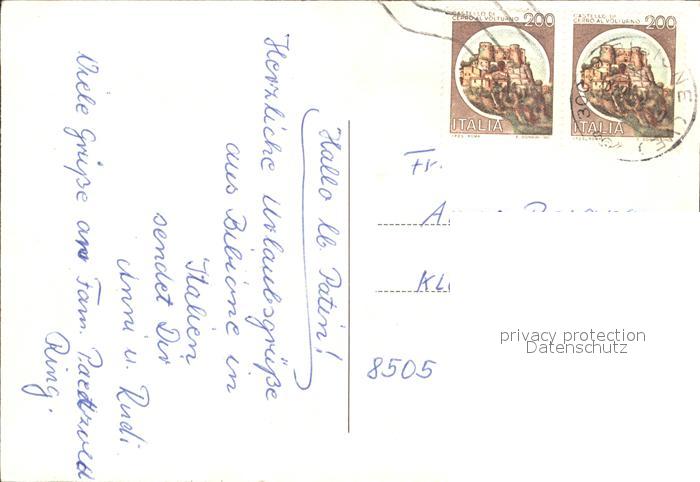 Hallo lb. Patin!
Herzliche Urlaubsgrüße
aus Bibione in
Italien
sendet Dir
Anni u. Rudi.
Viele Grüße an Fam.
Ring.
CASTELLO DI
CERRO AL VOLTURNO
200
ITALIA
I.P.Z.S. ROMA
CASTELLO DI
CERRO AL VOLTURNO
200
ITALIA
I.P.Z.S. ROMA
Fr.
8505
privacy protection
Datenschutz